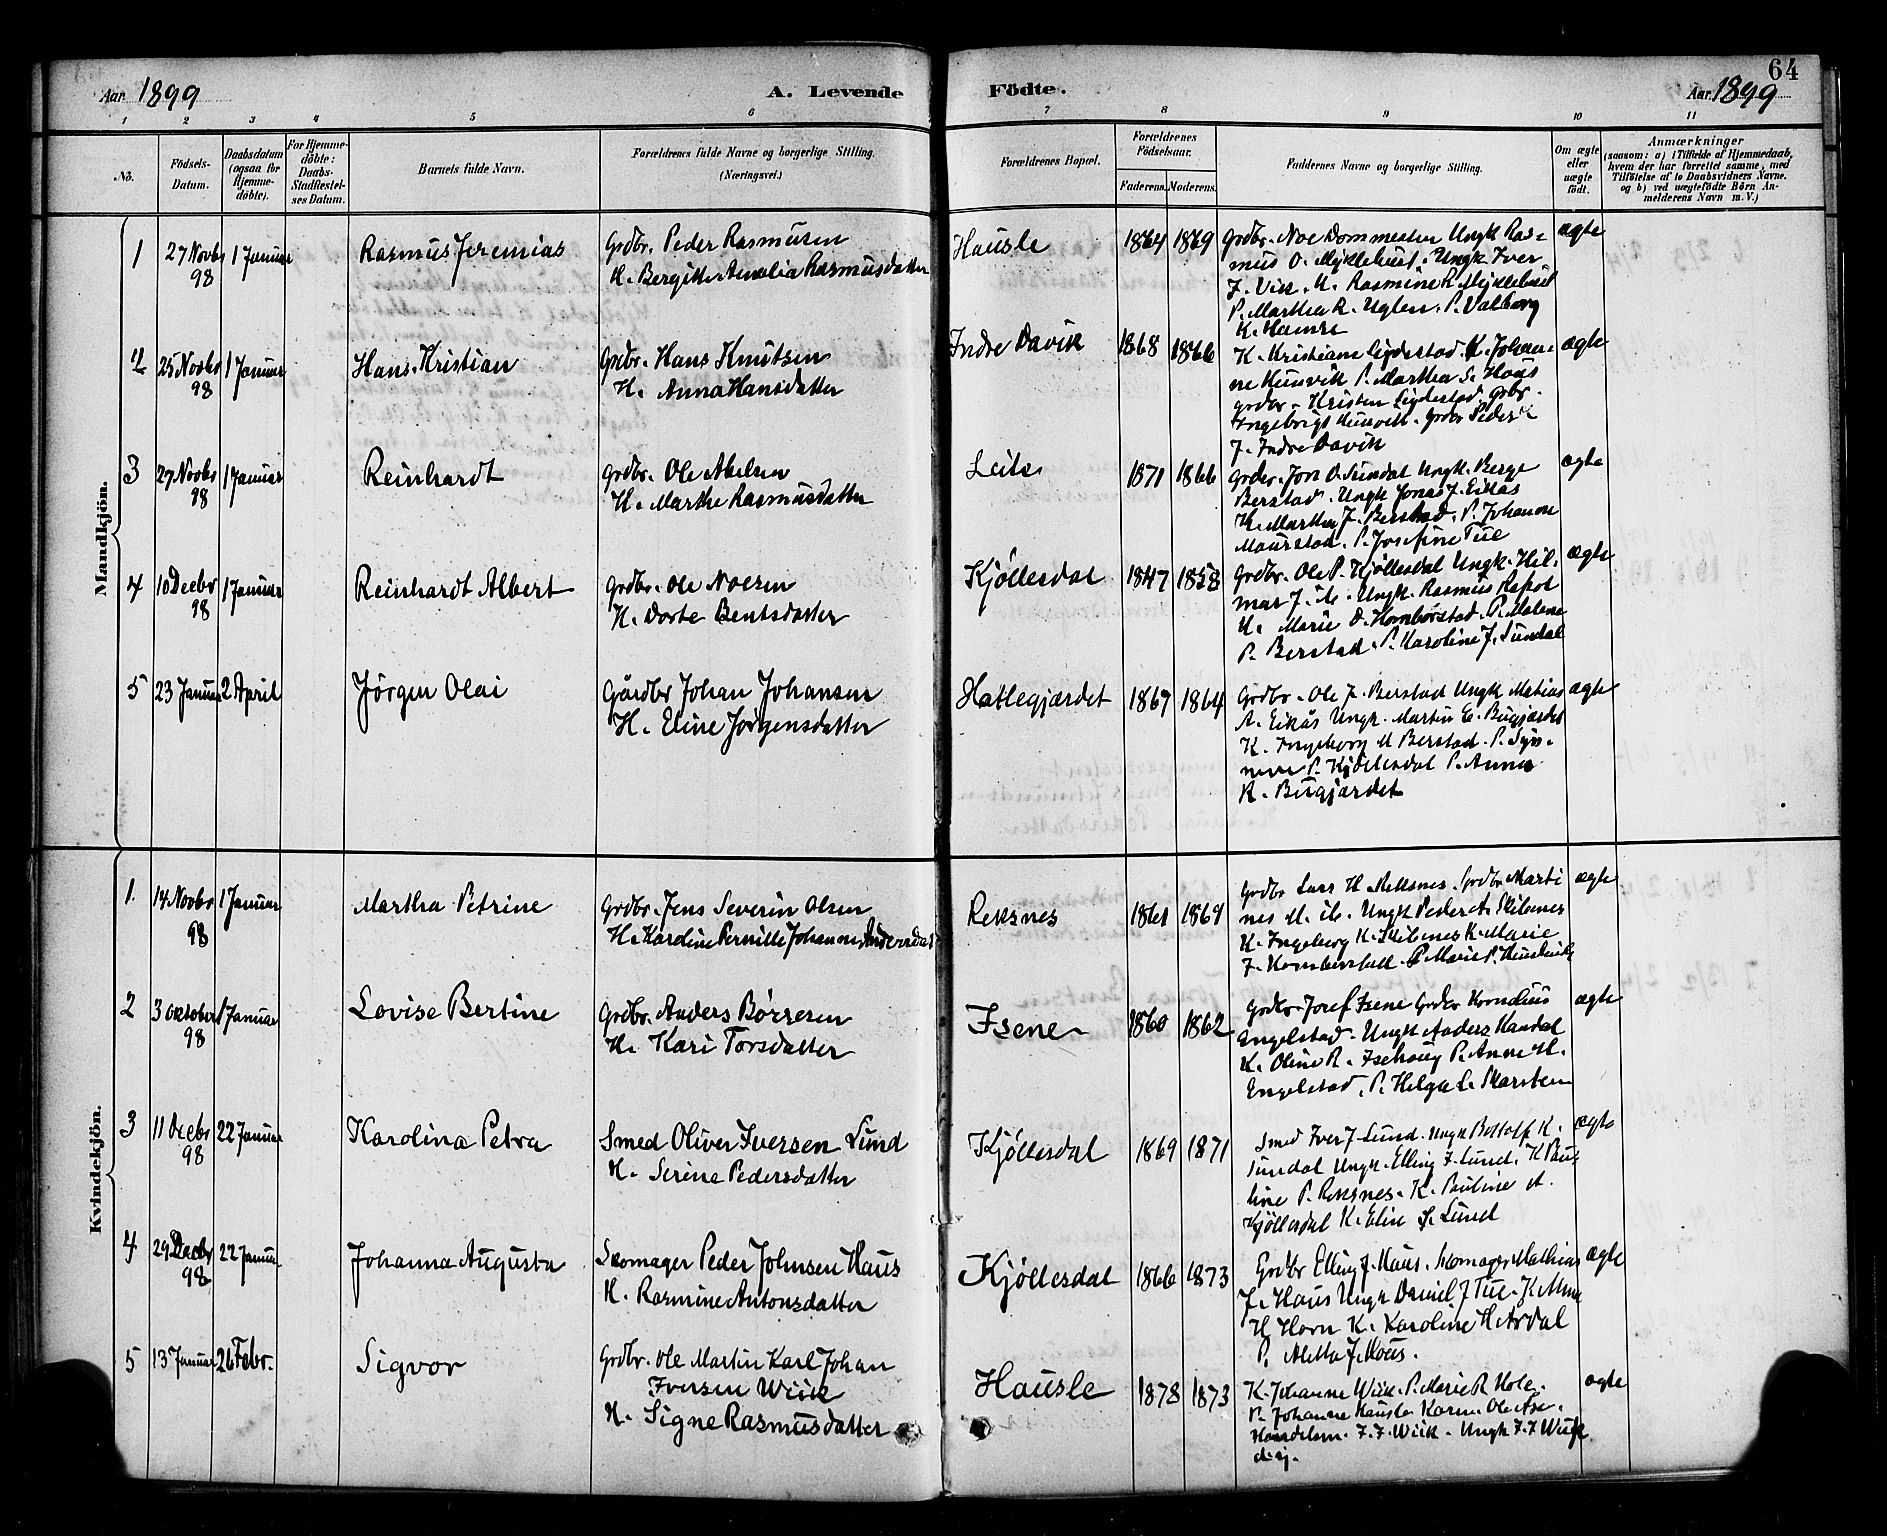 64
Aar 1899
A. Levende
Födte.
Aar 1899
1 2 3 4 5 6 7 8 9 10 11
No.
Födsels-
Datum.
Daabsdatum
(ogsaa for
Hjemme-
döbte).
For Hjemme-
döbte:
Daabs-
Stadfæstel-
ses Datum.
Barnets fulde Navn.
Forældrenes fulde Navne og borgerlige Stilling.
(Næringsvei.)
Forældrenes Bopæl.
Forældrenes
Födselsaar.
Faderens. Moderens.
Faddernes Navne og borgerlige Stilling.
Om ægte
eller
uægte
födt.
Anmærkninger
(saasom: a) i Tilfælde af Hjemmedaab,
hvem der har forrettet samme, med
Tilföielse af to Daabsvidners Navne,
og b) ved uægtefödte Börn An-
melderens Navn m. V.)
Mandkjön.
1 27 Novbr 98 1 Januar Rasmus Jeremias
Grdbr. Peder Rasmusen
H. Bergitte Amalia Rasmusdatter
Hausle 1864 1869
Grdbr. Noe Dommesten Ungk Ras-
mus O. Myklebust. Ungk Iver
J. Vik. K. Rasmine R Myklebust
P. Martha R. Uglen. P. Valborg
K. Hamre
ægte
2 25 Novbr 98 1 Januar Hans Kristian
Grdbr. Hans Knutsen
H. Anna Hansdatter
Indre Davik 1868 1866
K. Kristiane Sigdestad K. Johan-
ne P. Martha S. Haus
grdbr. Kristen Sigdestad grbr.
J. Indre Davik
ægte
3 27 Novbr 98 1 Januar Reinhardt
Grdbr. Ole Abelsen
H. Marthe Rasmusdatter
Leite 1871 1866
Grdbr. Jon O. Sundal Ungk. Berge
Berstad. Ungk Jonas J. Eikås
K. Martha J. Berstad. P. Johanne
Maurstad. P. Josefine Tue
ægte
4 10 Decbr 98 1 Januar Reinhardt Albert
Grdbr. Ole Noesen
H. Dorte Bentsdatter
Kjöllesdal 1847 1858
Grdbr. Ole P. Kjöllesdal Ungk. Hil-
mar J. ib. Ungk. Rasmus
K. Marie O. Hornbörstad. P. Malene
P. Berstad. P. Karoline J. Sundal
ægte
5 23 Januar 2 April Jörgen Olai
Gårdbr Johan Johansen
H. Eline Jörgensdatter
Hatlegjærdet 1867 1864
Grdbr. Ole J. Berstad Ungk Matias
A. Eikås Ungk. Martin E. Bugjærdet
K. Ingeborg M Berstad. P. Syn-
neve P. Kjöllesdal P. Anna
K. Bugjærdet
ægte
Kvindekjön.
1. 14 Novbr 98 1 Januar Martha Petrine
Grdbr. Jens Severin Olsen
H. Karoline Pernille Johanne Andersdat
Reksnes 1861 1869
Grdbr Lars H Reksnes. Grdbr Marti
nes M. ib. Ungk Peder A. Skibenes
K. Ingeborg K. Skibenes K. Marie
J. P. Marie P.
ægte
2 3 Oktober 98 1 Januar Lovise Bertine
Grdbr. Anders Börresen
H. Kari Torsdatter
Isene 1860 1862
Grdbr. Josef Isene Grdbr Kornelius
Engelstad. Ungk Anders Kandal
K. Oline R. Isehaug P. Anne M.
Engelstad. P. Helga L. Skarsten
ægte
3 11 Decbr 98 22 Januar Karolina Petra
Smed Oliver Iversen Lund
H. Serine Pedersdatter
Kjöllesdal 1869 1871
Smed Iver J. Lund. Ungk Bottolf K.
Sundal Ungk. Elling J. Lund. K Pau-
line P. Reksnes. K. Pauline A.
Kjöllesdal K. Elin S. Lund
ægte
4 29 Decbr 98 22 Januar Johanna Augusta
Skomager Peder Johnsen Haus
H. Rasmine Antonsdatter
Kjöllesdal 1866 1873
Grdbr Elling J. Haus. Skomager Mathias
J. Haus Ungk Daniel J Tue. K.
H Havn K. Karoline H. Ardal
P. Aletta J. Haus.
ægte
5 13 Januar 26 Febr. Sigvor
Grdbr. Ole Martin Karl Johan
Iversen Wiik
H. Signe Rasmusdatter
Hausle 1878 1873
K. Johanne Wiik. P. Marie R Hole.
P. Johanne Hausle Ole
Handelsm. I. J. Wiik. Ungk I. J Wiik
d.y.
ægte